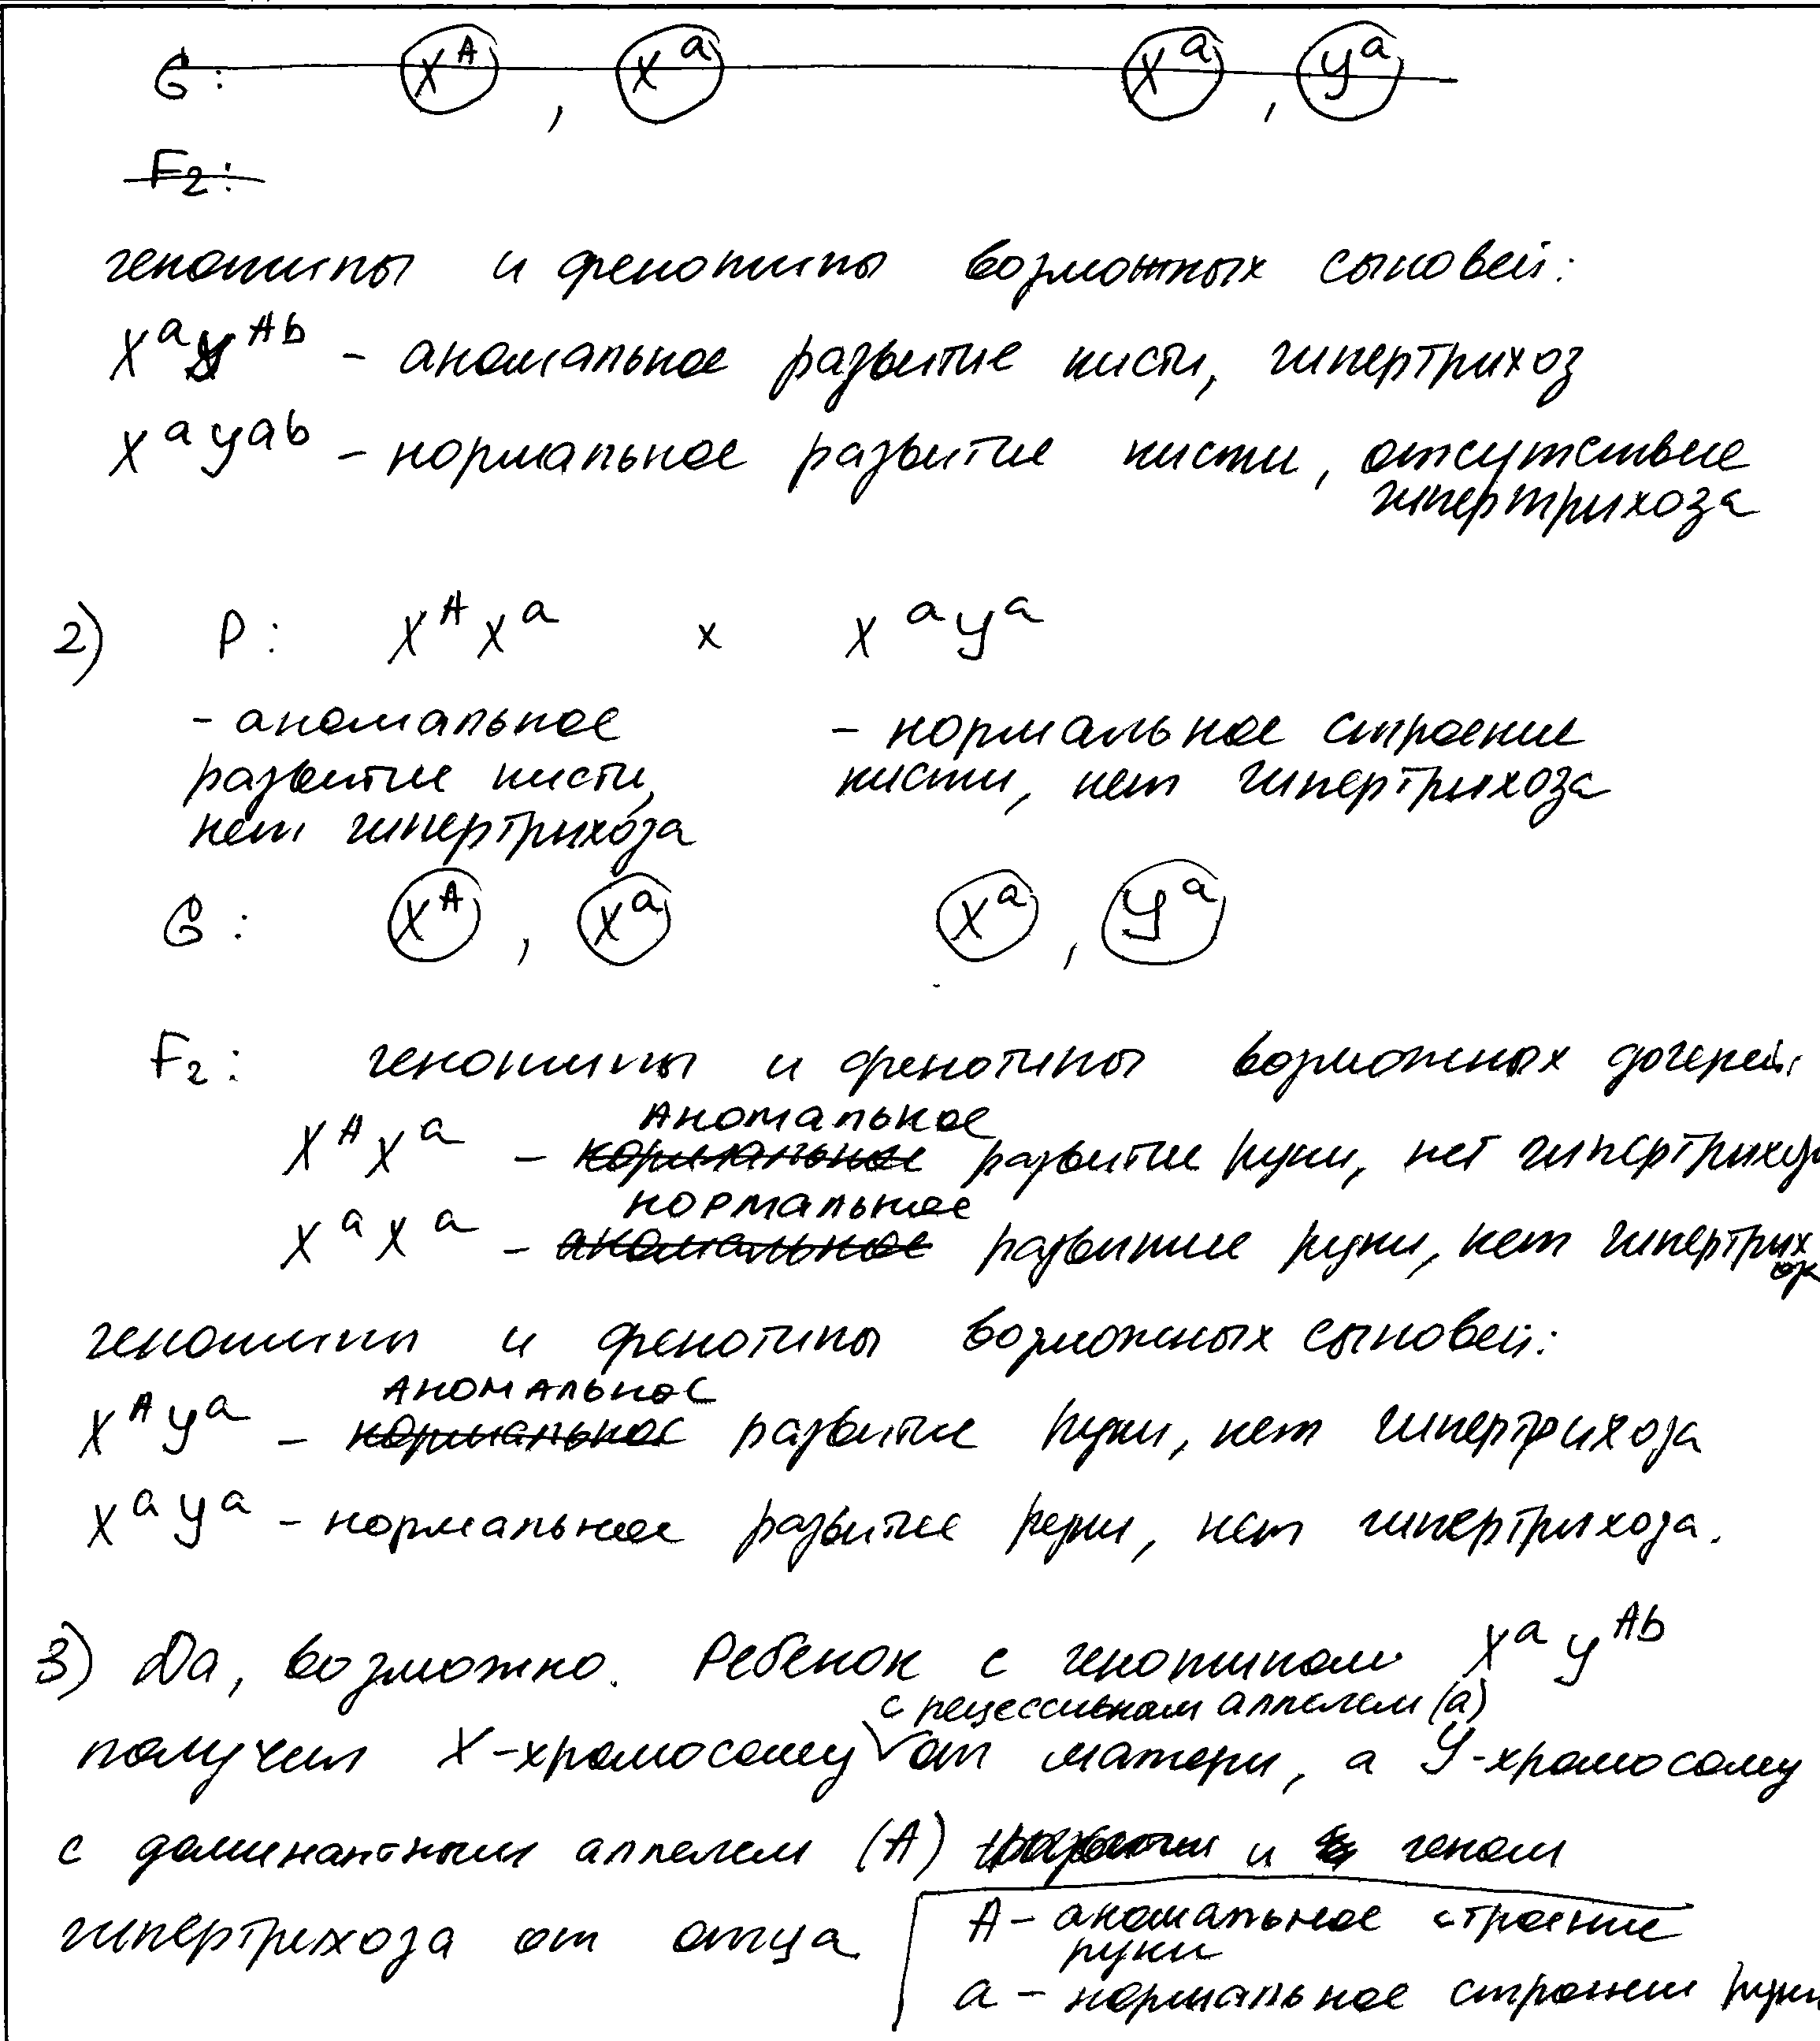 G: X^A , X^a X^a , У^a
F2:
генотипы и фенотипы возможных сыновей:
X^a У^Ab – аномальное развитие кисти, гипертрихоз
X^a У^ab – нормальное развитие кисти, отсутствие
гипертрихоза
2) P: X^A X^a x X^a У^a
- аномальное – нормальное строение
развитие кисти, кисти, нет гипертрихоза
нет гипертрихоза
G: X^A , X^a X^a , У^a
F2: генотипы и фенотипы возможных дочерей:
Аномальное
X^A X^a – нормальное развитие руки, нет гипертрихоза
нормальное
X^a X^a – аномальное развитие руки, нет гипертрихоз
генотипы и фенотипы возможных сыновей:
Аномальное
X^A У^a – нормальное развитие руки, нет гипертрихоза
X^a У^a – нормальное развитие руки, нет гипертрихоза.
3) Да, возможно. Ребенок с генотипом X^a У^Ab
с рецессивном аллелем (a)
получил X-хромосому от матери, а У-хромосому
с доминантным аллелем (A) и геном
гипертрихоза от отца
A – аномальное строение
руки
a – нормальное строение руки